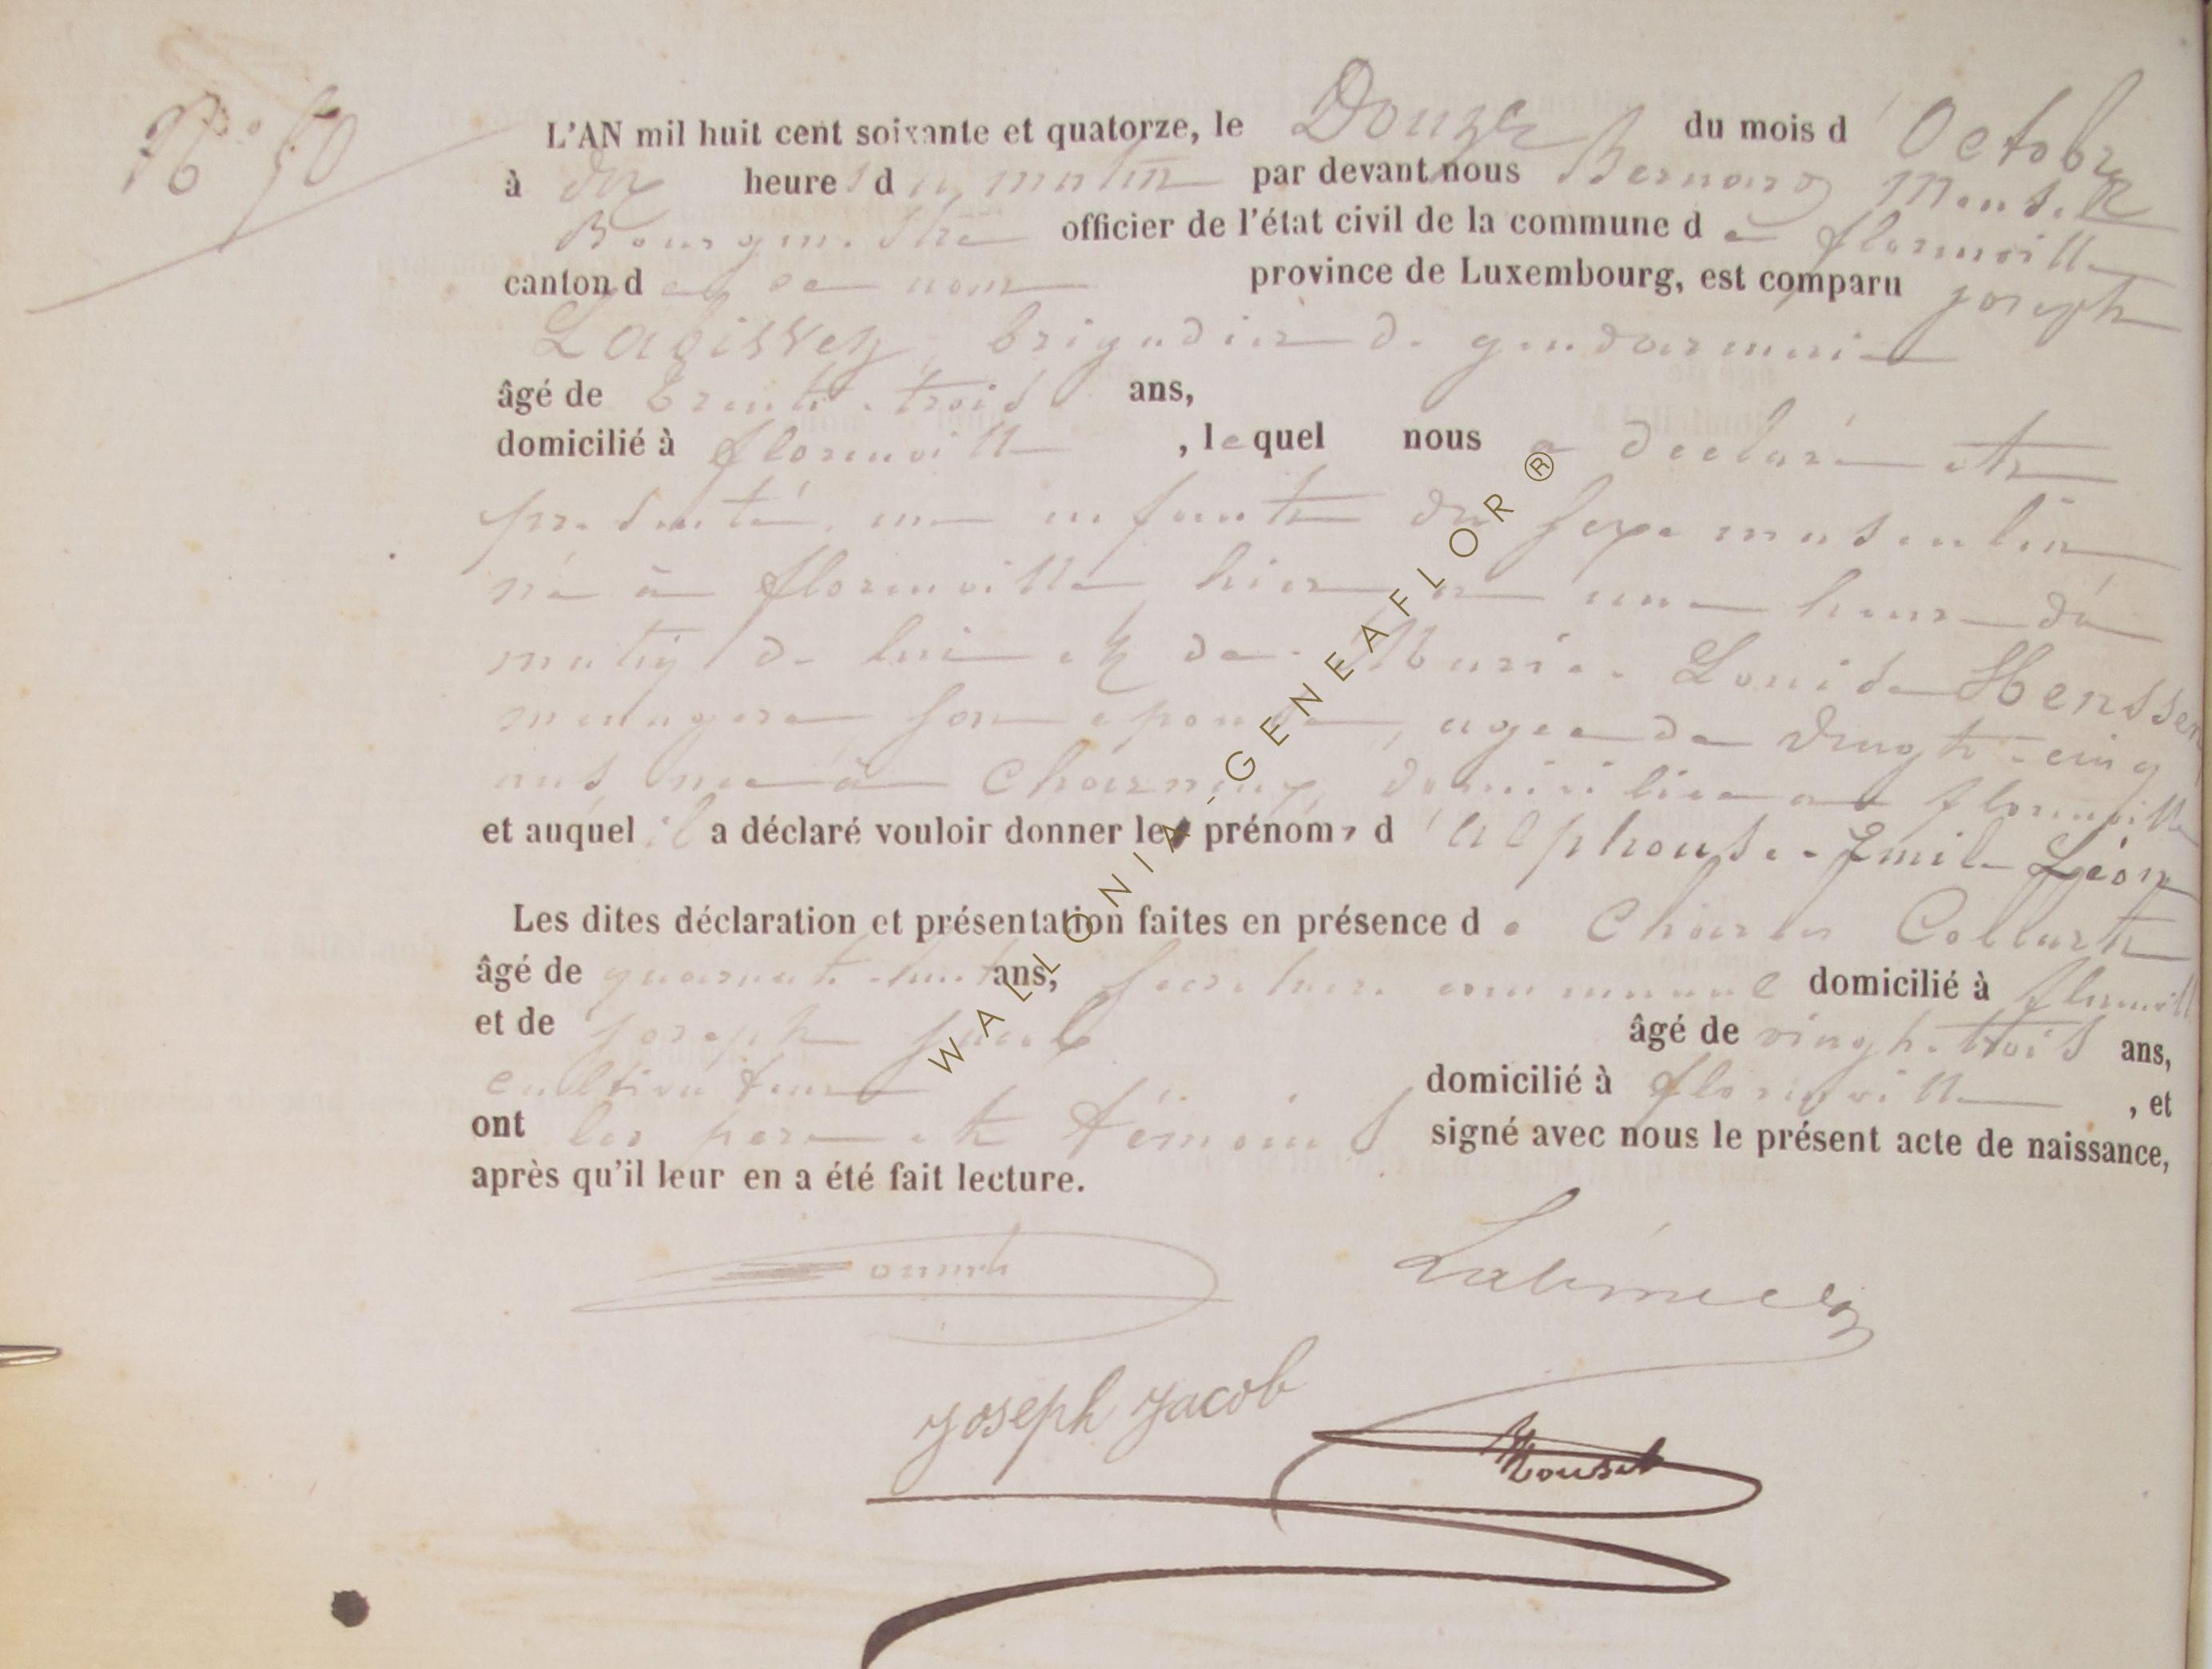 N° 50
L'AN mil huit cent soixante et quatorze, le Douze du mois d'Octobre
à dix heures du matin par devant nous Bernard Mouset
Bourgmestre officier de l'état civil de la commune de florenville
canton de ce nom province de Luxembourg, est comparu joseph
brigadier de gendarmerie
âgé de trente-trois ans,
domicilié à florenville, lequel nous a déclaré et
présenté, un enfant du sexe masculin
né à florenville, hier, à une heure du
matin, de lui et de Marie-Louise Henssen
menagère son épouse, agée de vingt-cinq
ans née à domiciliée à florenville
et auquel il a déclaré vouloir donner les prénoms d'Alphonse-Emile Léon
Les dites déclaration et présentation faites en présence de Charles Collart
âgé de quarante-huit ans, secrétaire communal domicilié à florenville
et de joseph jacob âgé de vingt-trois ans,
cultivateur domicilié à florenville, et
ont les père et témoins signé avec nous le présent acte de naissance,
après qu'il leur en a été fait lecture.
Joseph Jacob
Mouset
WALLONIA-GENEAFLOR ®